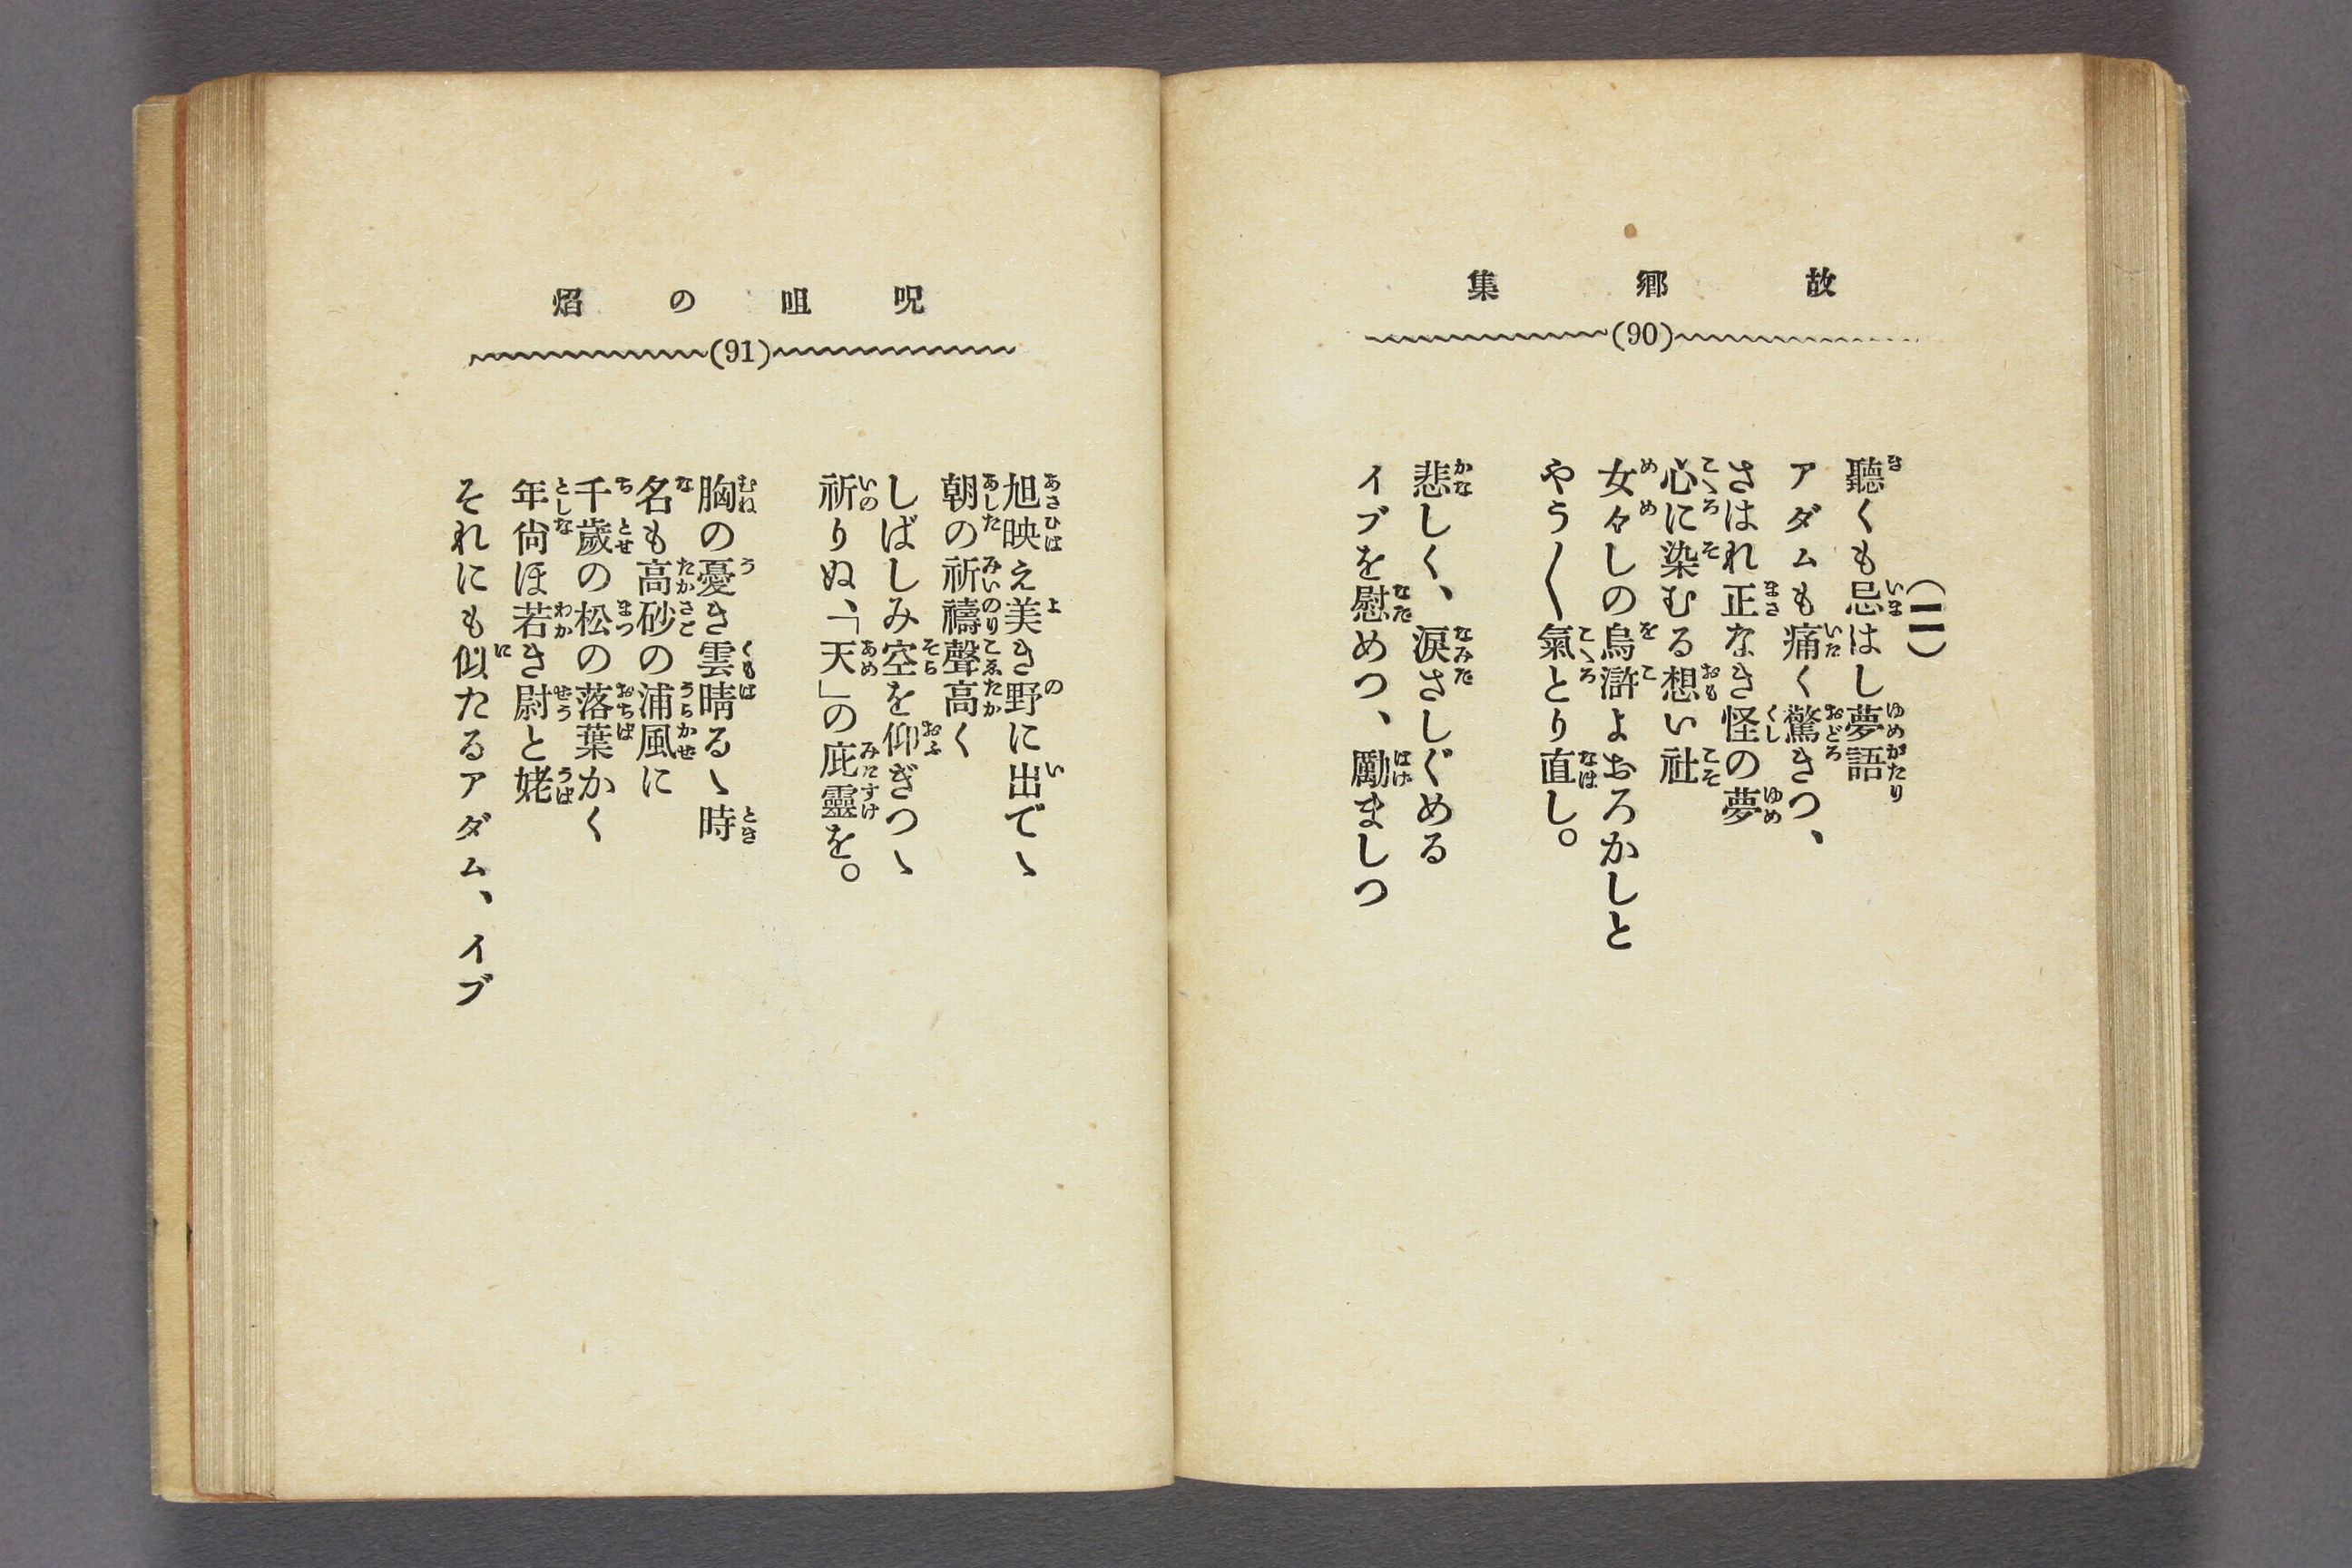 故郷集
(90)
(二)
聽くも忌はし夢語
アダムも痛く驚きつ、
さはれ正なき怪の夢
心に染むる想い社
女々しの烏滸よおろかしと
やう〱氣とり直し。
悲しく、涙さしぐめる
イブを慰めつ、勵ましつ
呪咀の焰
(91)
旭映え美き野に出でゝ
朝の祈禱聲高く
しばしみ空を仰ぎつゝ
祈りぬ、「天」の庇靈を。
胸の憂き雲晴るゝ時
名も高砂の浦風に
千歲の松の落葉かく
年尙ほ若き尉と姥
それにも似たるアダム、イブ